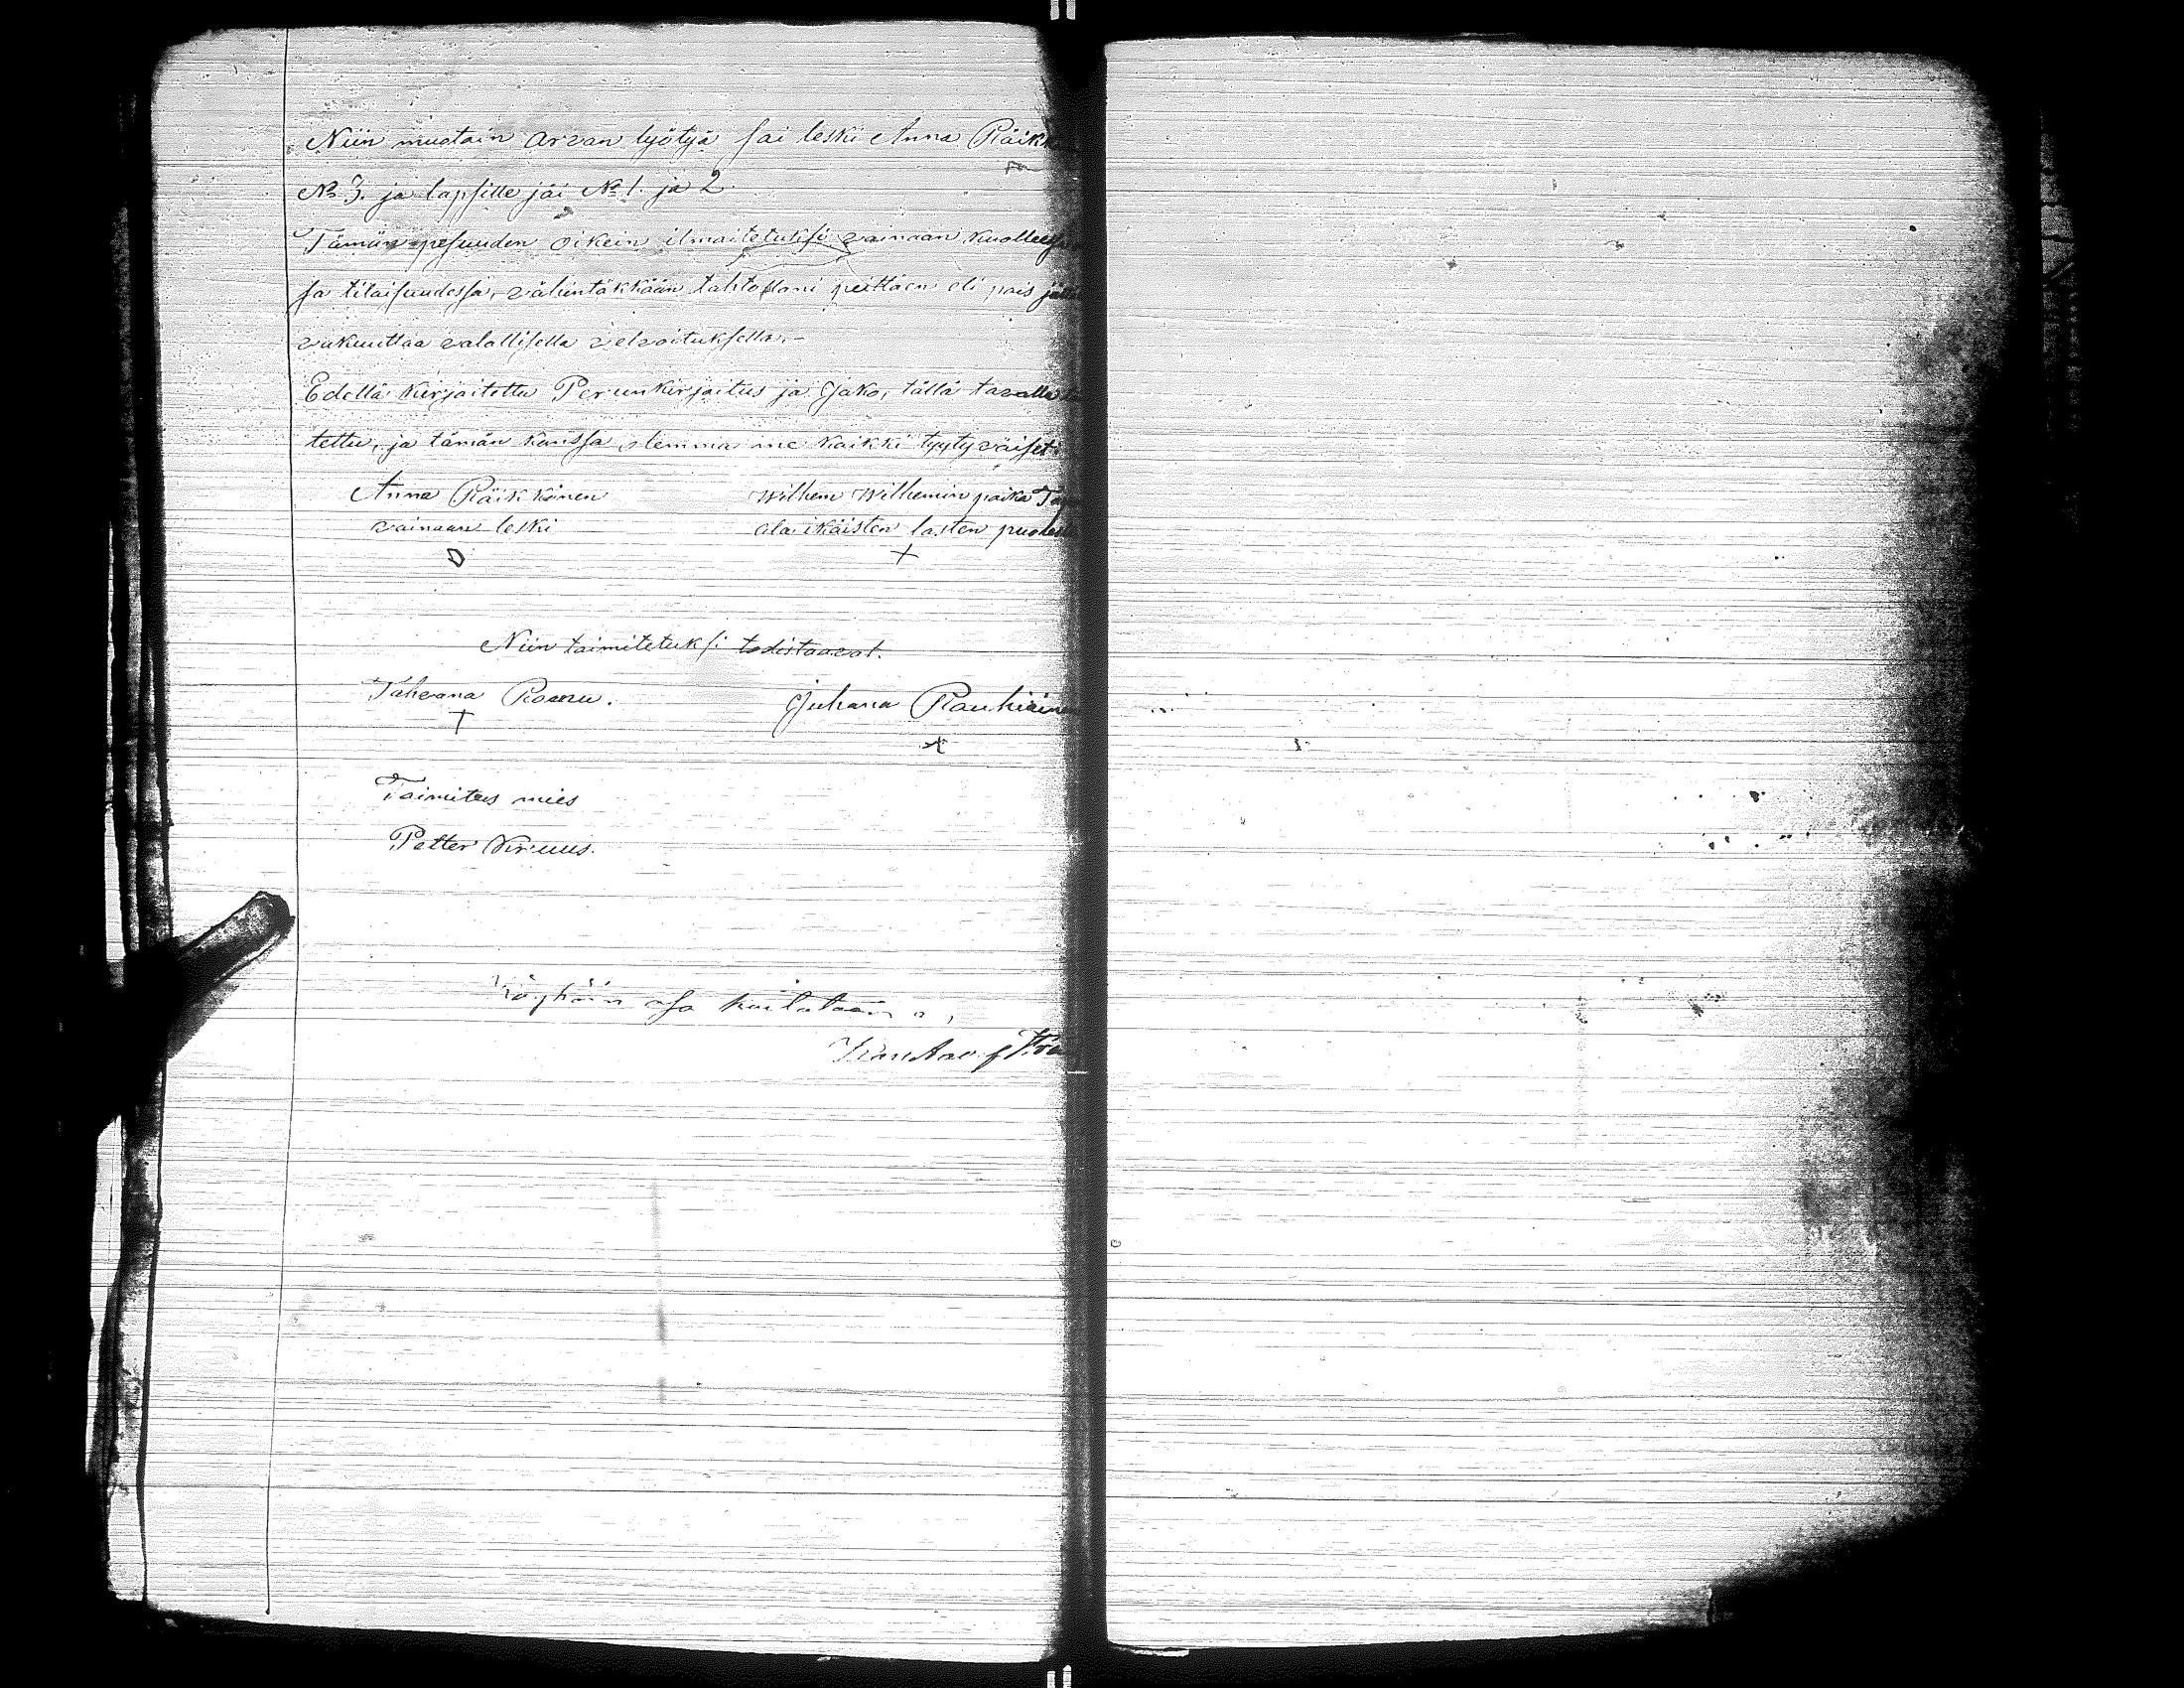 Niin muotoin arvan lyötyä sai leski Anna Räikkö
nen
No 3. ja lapsille jäi No 1. ja 2.
Tämän pesuuden oikein ilmoitetuksi vainaan kuollessa
sa tilaisuudessa, vähintäkkään tahtollani peittäen eli pois jättä
vakuuttaa valallisella velvoituksella. –
Edellä kirjoitettu Perunkirjoitus ja Jako, tällä tavalla
tettu, ja tämän kanssa olemma me kaikki tyytyväiset.
Anna Räikkönen Wilhem Wilhemin poika
vainaan leski ala ikäisten lasten puolesta
Niin toimitetuksi todistaavat.
Tahvana Juhana Rauhiainen
Toimitus mies
Petter Kiruus.
Köyhäin osa kuitataan